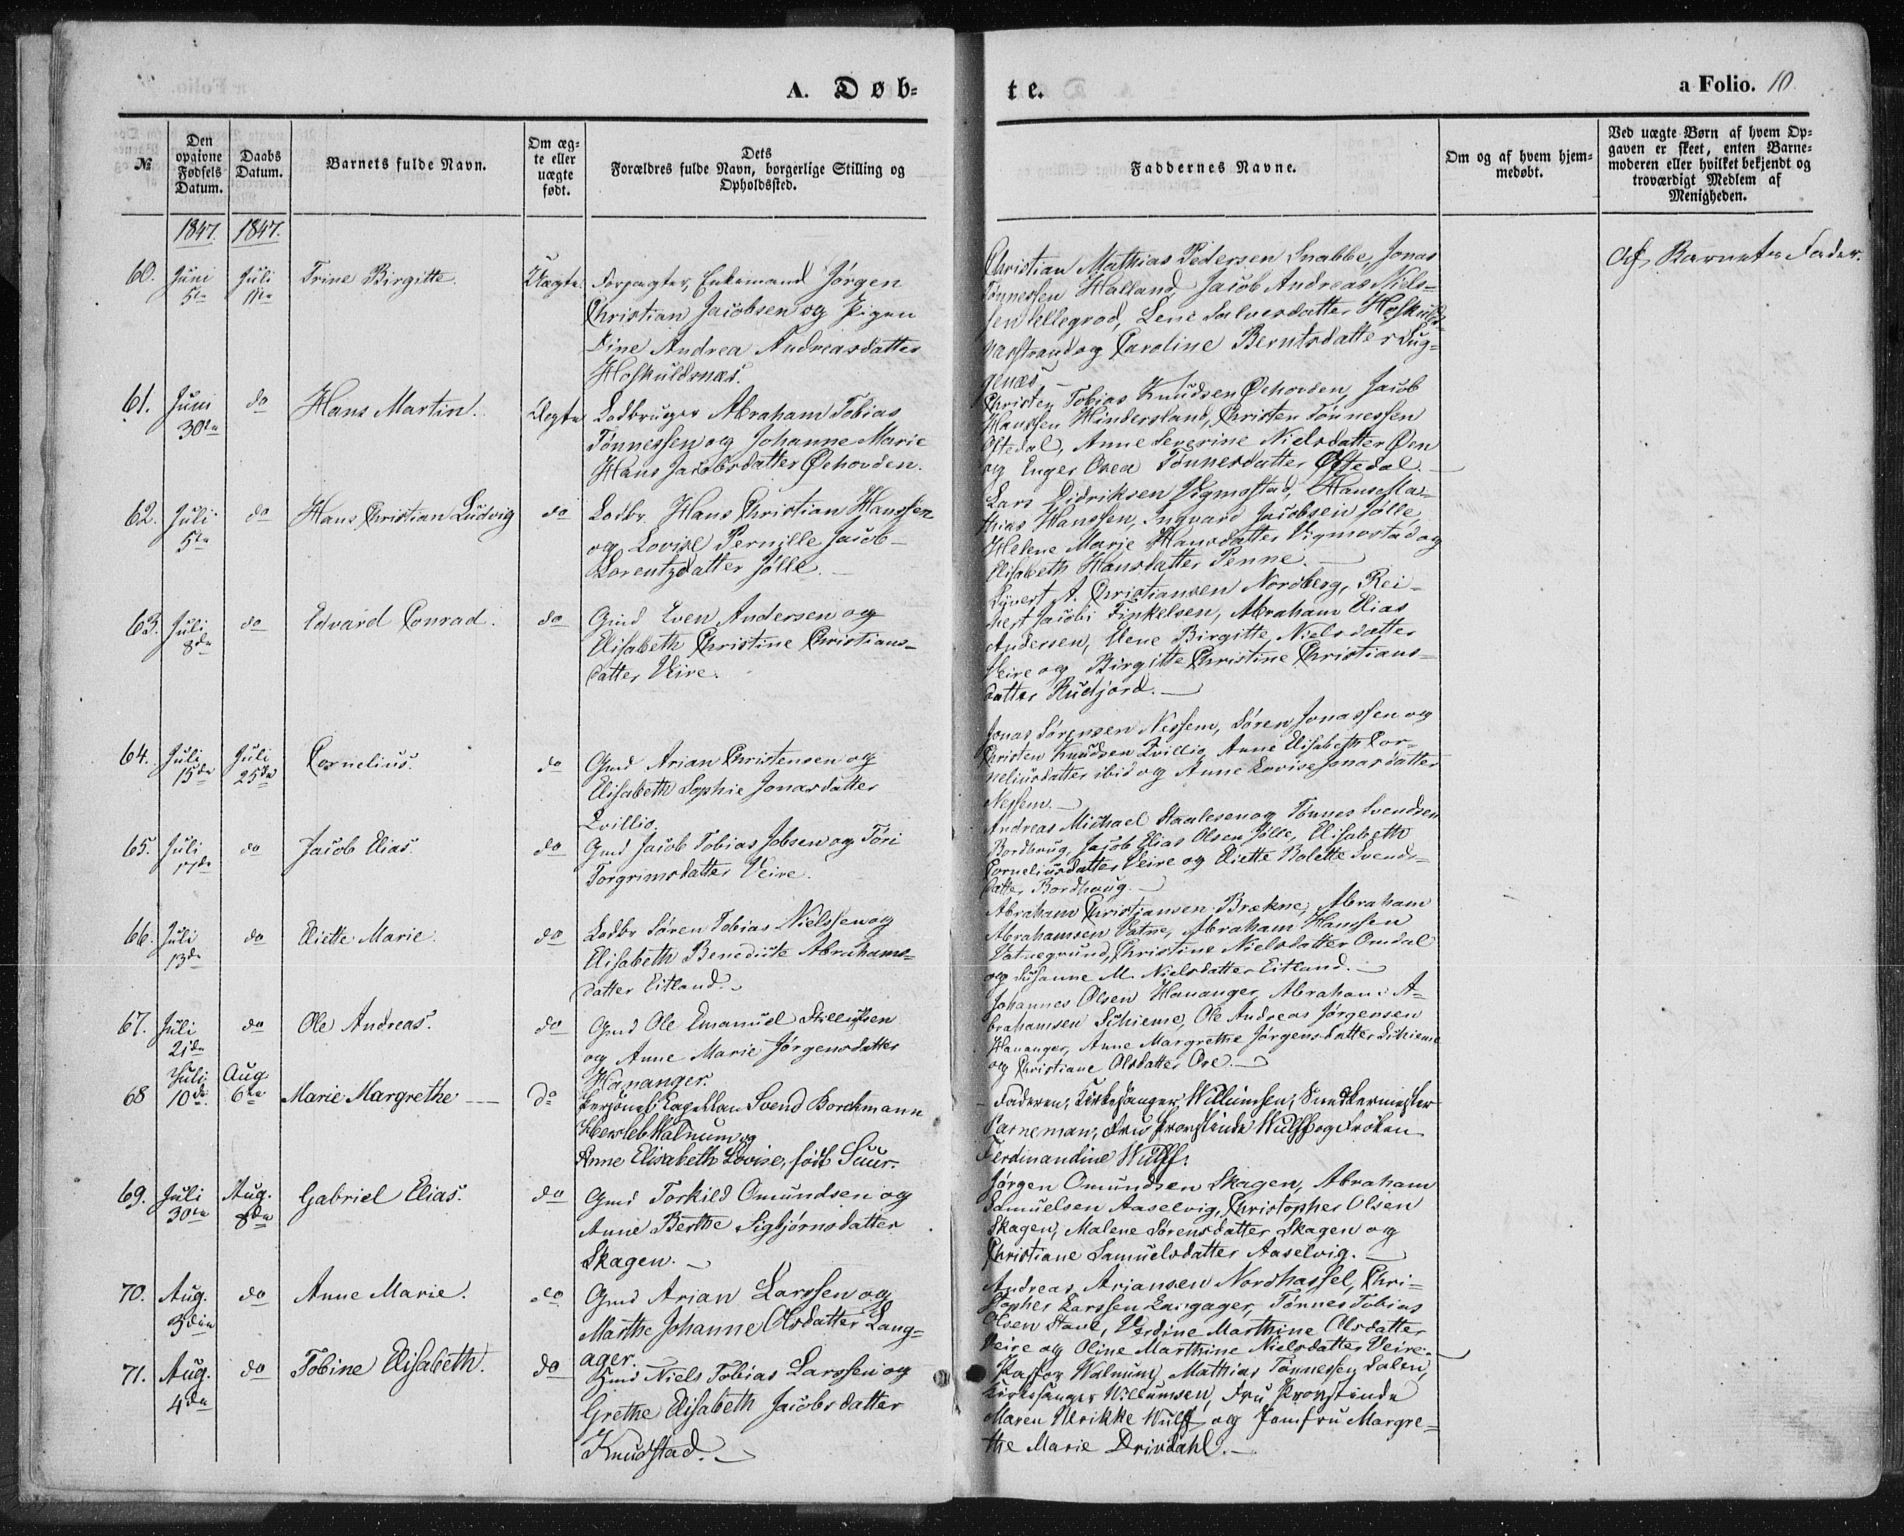 A. Døb-
te.
a Folio. 10.
№
Den opgivne Fødsels Datum.
Daabs Datum.
Barnets fulde Navn.
Om ægte eller uægte født.
Dets Forældres fulde Navn, borgerlige Stilling og Opholdssted.
Faddernes Navne.
Om og af hvem hjemmedøbt.
Ved uægte Børn af hvem Opgaven er skeet, enten Barnemoderen eller hvilket bekjendt og troværdigt Medlem af Menigheden.
1847. 1847.
60. Juni 5te Juli 11te Trine Birgitte. Uægte.
Forpagter, Enkemand Jørgen
Christian Jacobsen og Pigen
Tine Andrea Andreasdatter
Hoskuldsnæs.
Christian Mathias Pedersen Snabbe, Jonas
Tønnessen Halland, Jacob Andreas Niels-
sen Ellegrod, Lene Salvesdatter
og Caroline Berntsdatter Lug-
genæs
Af Barnets Fader.
61. Juni 30te do Hans Martin. Ægte
Lodbruger Abraham Tobias
Tønnessen og Johanne Marie
Hans Jacobsdatter Øehovden.
Christen Tobias Knudsen Øehovden, Jacob
Hanssen Hindersland, Christen Tønnessen
Oftedal, Anne Severine Nielsdatter Øen
og Inger Osea Tønnesdatter Oftedal.
62. Juli 5te do Hans Christian Ludvig do
Lodbr Hans Christian Hanssen
og Lovise Pernille Jacob
Lorentzdatter Jølle.
Lars Didriksen Vigmostad, Hans Ma-
thias Hanssen, Ingvard Jacobsen Jølle,
Helene Marie Hansdatter Vigmostad og
Elisabeth Hansdatter Penne.
63. Juli 8de do Edvard Conrad. do
Gmd Even Andersen og
Elisabeth Christine Christians-
datter Veire.
Syvert A. Christiansen Nordberg, Rei-
nert Jacobi Finkelsen, Abraham Elias
Andersen, Elene Birgitte Nielsdatter
Veire og Birgitte Christine Christians-
datter Rudjord.
64. Juli 15de Juli 25de Cornelius. do
Gmd Arian Christensen og
Elisabeth Sophie Jonasdatter
Qvillio.
Jonas Sørensen Nessem, Søren Jonassen og
Christen Knudsen Qvillio, Anne Elisabeth Cor-
neliusdatter ibid og Anne Lovise Jonasdatter
Nessem.
65. Juli 17de do Jacob Elias. do
Gmd Jacob Tobias Jobsen og Tøri
Torgrimsdatter Veire.
Andreas Michael Staalesen og Tønnes Svendsen
Bordhaug, Jacob Elias Olsen Jølle, Elisabeth
Corneliusdatter Veire og Eliette Bolette Svends-
datter Bordhaug.
66. Juli 13de do Eliette Marie. do
Lodbr Søren Tobias Nielssen og
Elisabeth Benedicte Abrahams-
datter Eitland.
Abraham Christiansen Brækne, Abraham
Abrahamsen Vatne, Abraham Hanssen
Vatnegrund, Christine Nielsdatter Omdal
og Susanne M. Nielsdatter Eitland.
67. Juli 21de do Ole Andreas. do
Gmd Ole Emanuel
og Anne Marie Jørgensdatter
Hananger.
Johannes Olsen Hananger, Abraham A-
brahamsen Skieme, Ole Andreas Jørgensen
Hananger, Anne Margrethe Jørgensdatter Skieme
og Christiane Olsdatter Ore.
68 Juli 10de. Aug 6te Marie Margrethe do
Personel Capellan Svend Borchmann
Hersleb Walnum og
Anne Elisabeth Lovise, født Suur.
Faderen, Kirkesanger Willumsen,
Parneman, Fru Provstinde Wulff og Frøken
Ferdinandine Wulff.
69. Juli 30te Aug. 8de Gabriel Elias. do
Gmd Torkild Omundsen og
Anne Berthe Sigbjørnsdatter
Skagen.
Jørgen Omundsen Skagen, Abraham
Samuelsen Aaselvig, Christopher Olsen
Skagen, Malene Sørensdatter Skagen og
Christiane Samuelsdatter Aaselvig.
70. Aug. 3die do Anne Marie. do
Gmd Arian Larssen og
Marthe Johanne Olsdatter Lang-
ager.
Andreas Arjansen Nordhassel, Chri-
stopher Larssen Langager, Tønnes Tobias
Olsen Stave, Verdine Marthine Olsdatter
Veire og Oline Marthine Nielsdatter Veire.
71. Aug. 4de do Tobine Elisabeth. do
Gmd Niels Tobias Larssen og
Grethe Elisabeth Jacobsdatter
Knudstad.
Pastor Walnum, Mathias Tønnessen Dalen,
Kirkesanger Willumsen, Fru Provstinde
Maren Ulrikke Wulff og Jomfru Margre-
the Marie Drivdahl.